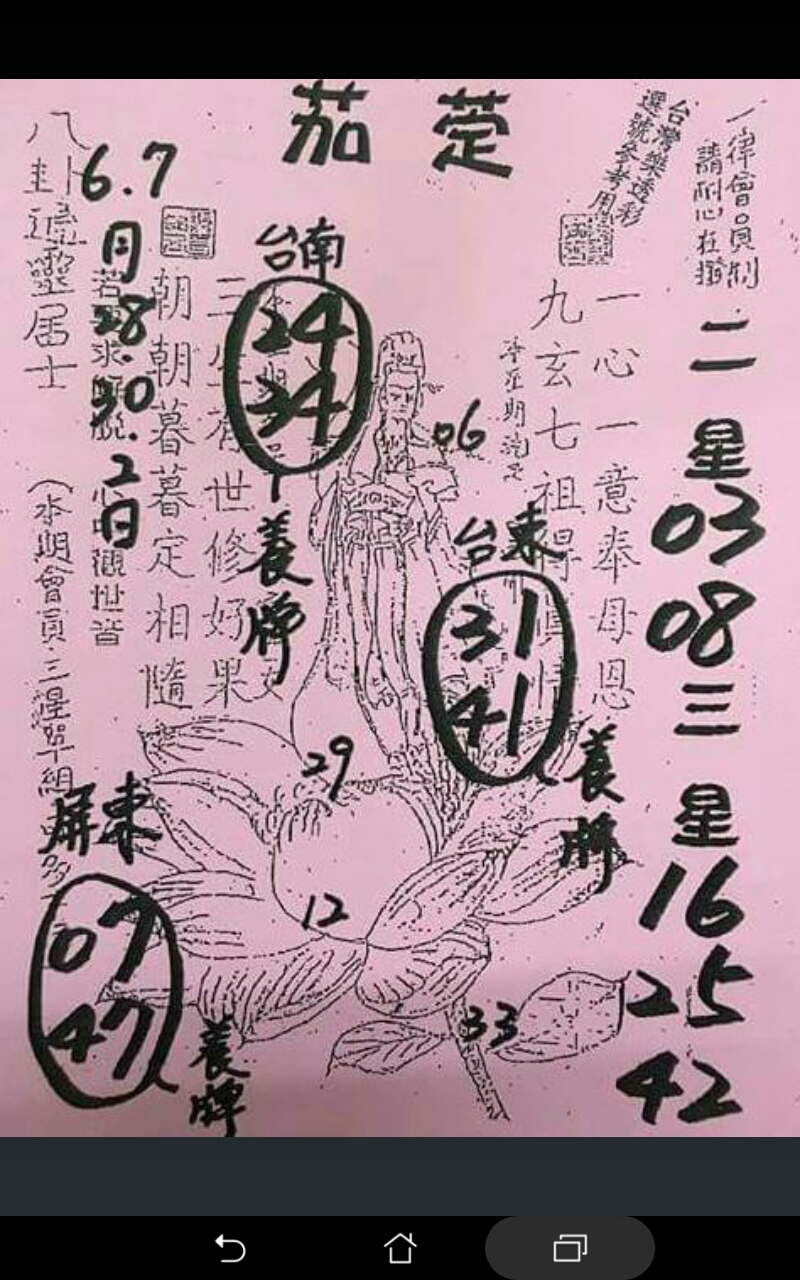 茄萣
台灣樂透彩
選號參考用
一律會員制
請耐心在撥
二星
03
08
三星
16
25
42
一心一意奉母恩
九玄七祖得
06
台東
31
41
養牌
台南
24
34
養牌
世修好果
朝朝暮暮定相隨
29
12
33
6.7
月
28.
30.
2
日
觀世音
八卦
靈居士
(本期會員三星
屏東
07
47
養牌